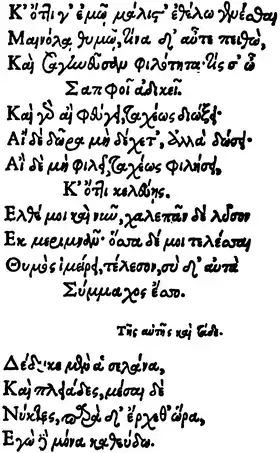 Κ' ὅττι γ' ἐμῷ μάλις' ἐθέλω γενέσθαι
Μαινόλᾳ θυμῷ, τίνα δ' αὖτε πειθὼ,
Καὶ σαγηνεῦσαν φιλότητα· τίς σ' ὦ
Σαπφοῖ ἀδικεῖ.
Καὶ γὰ αἰ φεύγει, ταχέως διώξει·
Αἰ δὲ δῶρα μὴ δέχετ', ἀλλὰ δώσει·
Αἰ δὲ μὴ φιλεῖ, ταχέως φιλήσει,
Κ' ὅττι κελεύης.
Ελθέ μοι καὶ νῦν, χαλεπᾶν δὲ λῦσον
Εκ μεριμνῶν· ὅσσα δέ μοι τελέσσαι
Θυμὸς ἱμέρει, τέλεσον, σὺ δ' αὐτὰ
Σύμμαχος ἔσσο.
Τῆς αὐτῆς καὶ τάδε.
Δέδυκε μὲν ἁ σελάνα,
Καὶ πληϊάδες, μέσαι δὲ
Νύκτες, παρὰ δ' ἔρχεθ' ὥρα,
Εγὼ δὲ μόνα καθεύδω.